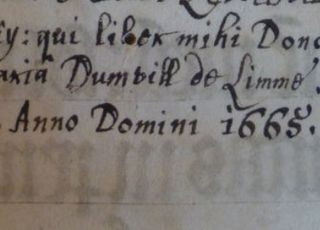 ey: qui liber mihi Dono
aria Dumvill de Limme
Anno Domini 1665.